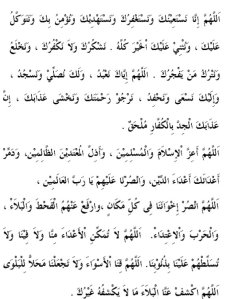 اَللّٰهُمَّ إِنَّا نَسْتَعِيْنُكَ وَنَسْتَغْفِرُكَ وَنَسْتَهْدِيْكَ وَنُؤْمِنُ بِكَ وَنَتَوَكَّلُ
عَلَيْكَ ، وَنُثْنِيْ عَلَيْكَ الْخَيْرَ كُلَّهُ ، نَشْكُرُكَ وَلَا نَكْفُرُكَ ، وَنَخْلَعُ
وَنَتْرُكُ مَنْ يَفْجُرُكَ . اَللّٰهُمَّ إِيَّاكَ نَعْبُدُ ، وَلَكَ نُصَلِّيْ وَنَسْجُدُ ،
وَإِلَيْكَ نَسْعَى وَنَحْفِدُ ، نَرْجُوْ رَحْمَتَكَ وَنَخْشَى عَذَابَكَ ، إِنَّ
عَذَابَكَ الْجِدَّ بِالْكُفَّارِ مُلْحَقٌ .
اَللّٰهُمَّ أَعِزَّ الْإِسْلَامَ وَالْمُسْلِمِيْنَ ، وَأَذِلَّ الْمُعْتَدِيْنَ الظَّالِمِيْنَ، وَدَمِّرْ
أَعْدَائَكَ أَعْدَاءَ الدِّيْنِ، وَانْصُرْنَا عَلَيْهِمْ يَا رَبَّ الْعَالَمِيْنَ ،
اَللّٰهُمَّ انْصُرْ إِخْوَانَنَا فِى كُلِّ مَكَانٍ ،وَارْفَعْ عَنْهُمُ الْقَحْطَ وَالْبَلَاءَ ،
وَالْحَرْبَ وَالْاِعْتِدَاءَ. اَللّٰهُمَّ لَا تُمَكِّنِ الْأَعْدَاءَ مِنَّا وَلَا فِيْنَا وَلَا
تُسَلِّطْهُمْ عَلَيْنَا بِذُنُوْبِنَا. اَللّٰهُمَّ قِنَا الْأَسْوَاءَ وَلَا تَجْعَلْنَا مَحَلًّا لِلْبَلْوَى
اَللّٰهُمَّ اكْشِفْ عَنَّا الْبَلَاءَ مَا لَا يَكْشِفُهُ غَيْرُكَ .